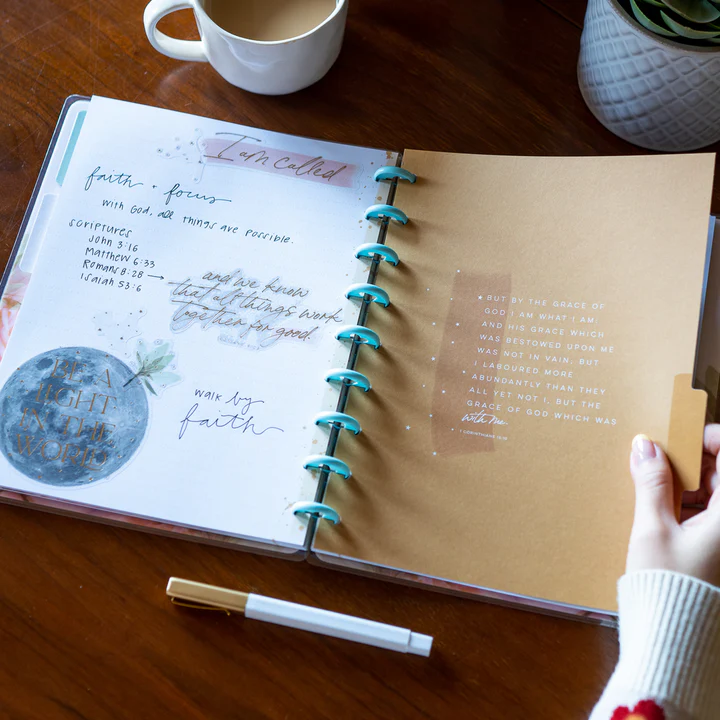 I am called
faith + focus
with God, all things are possible.
scriptures
John 3:16
Matthew 6:33
Romans 8:28 →
Isaiah 53:6
and we know
that all things work
together for good.
BE A
LIGHT
IN THE
WORLD
walk by
faith
BUT BY THE GRACE OF
GOD I AM WHAT I AM:
AND HIS GRACE WHICH
WAS BESTOWED UPON ME
WAS NOT IN VAIN; BUT
I LABOURED MORE
ABUNDANTLY THAN THEY
ALL: YET NOT I, BUT THE
GRACE OF GOD WHICH WAS
with me.
1 CORINTHIANS 15:10